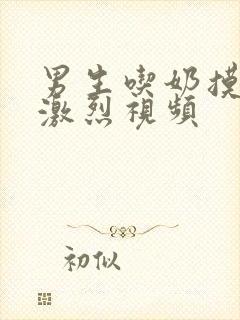 男生喫奶摸
激烈視頻
初似